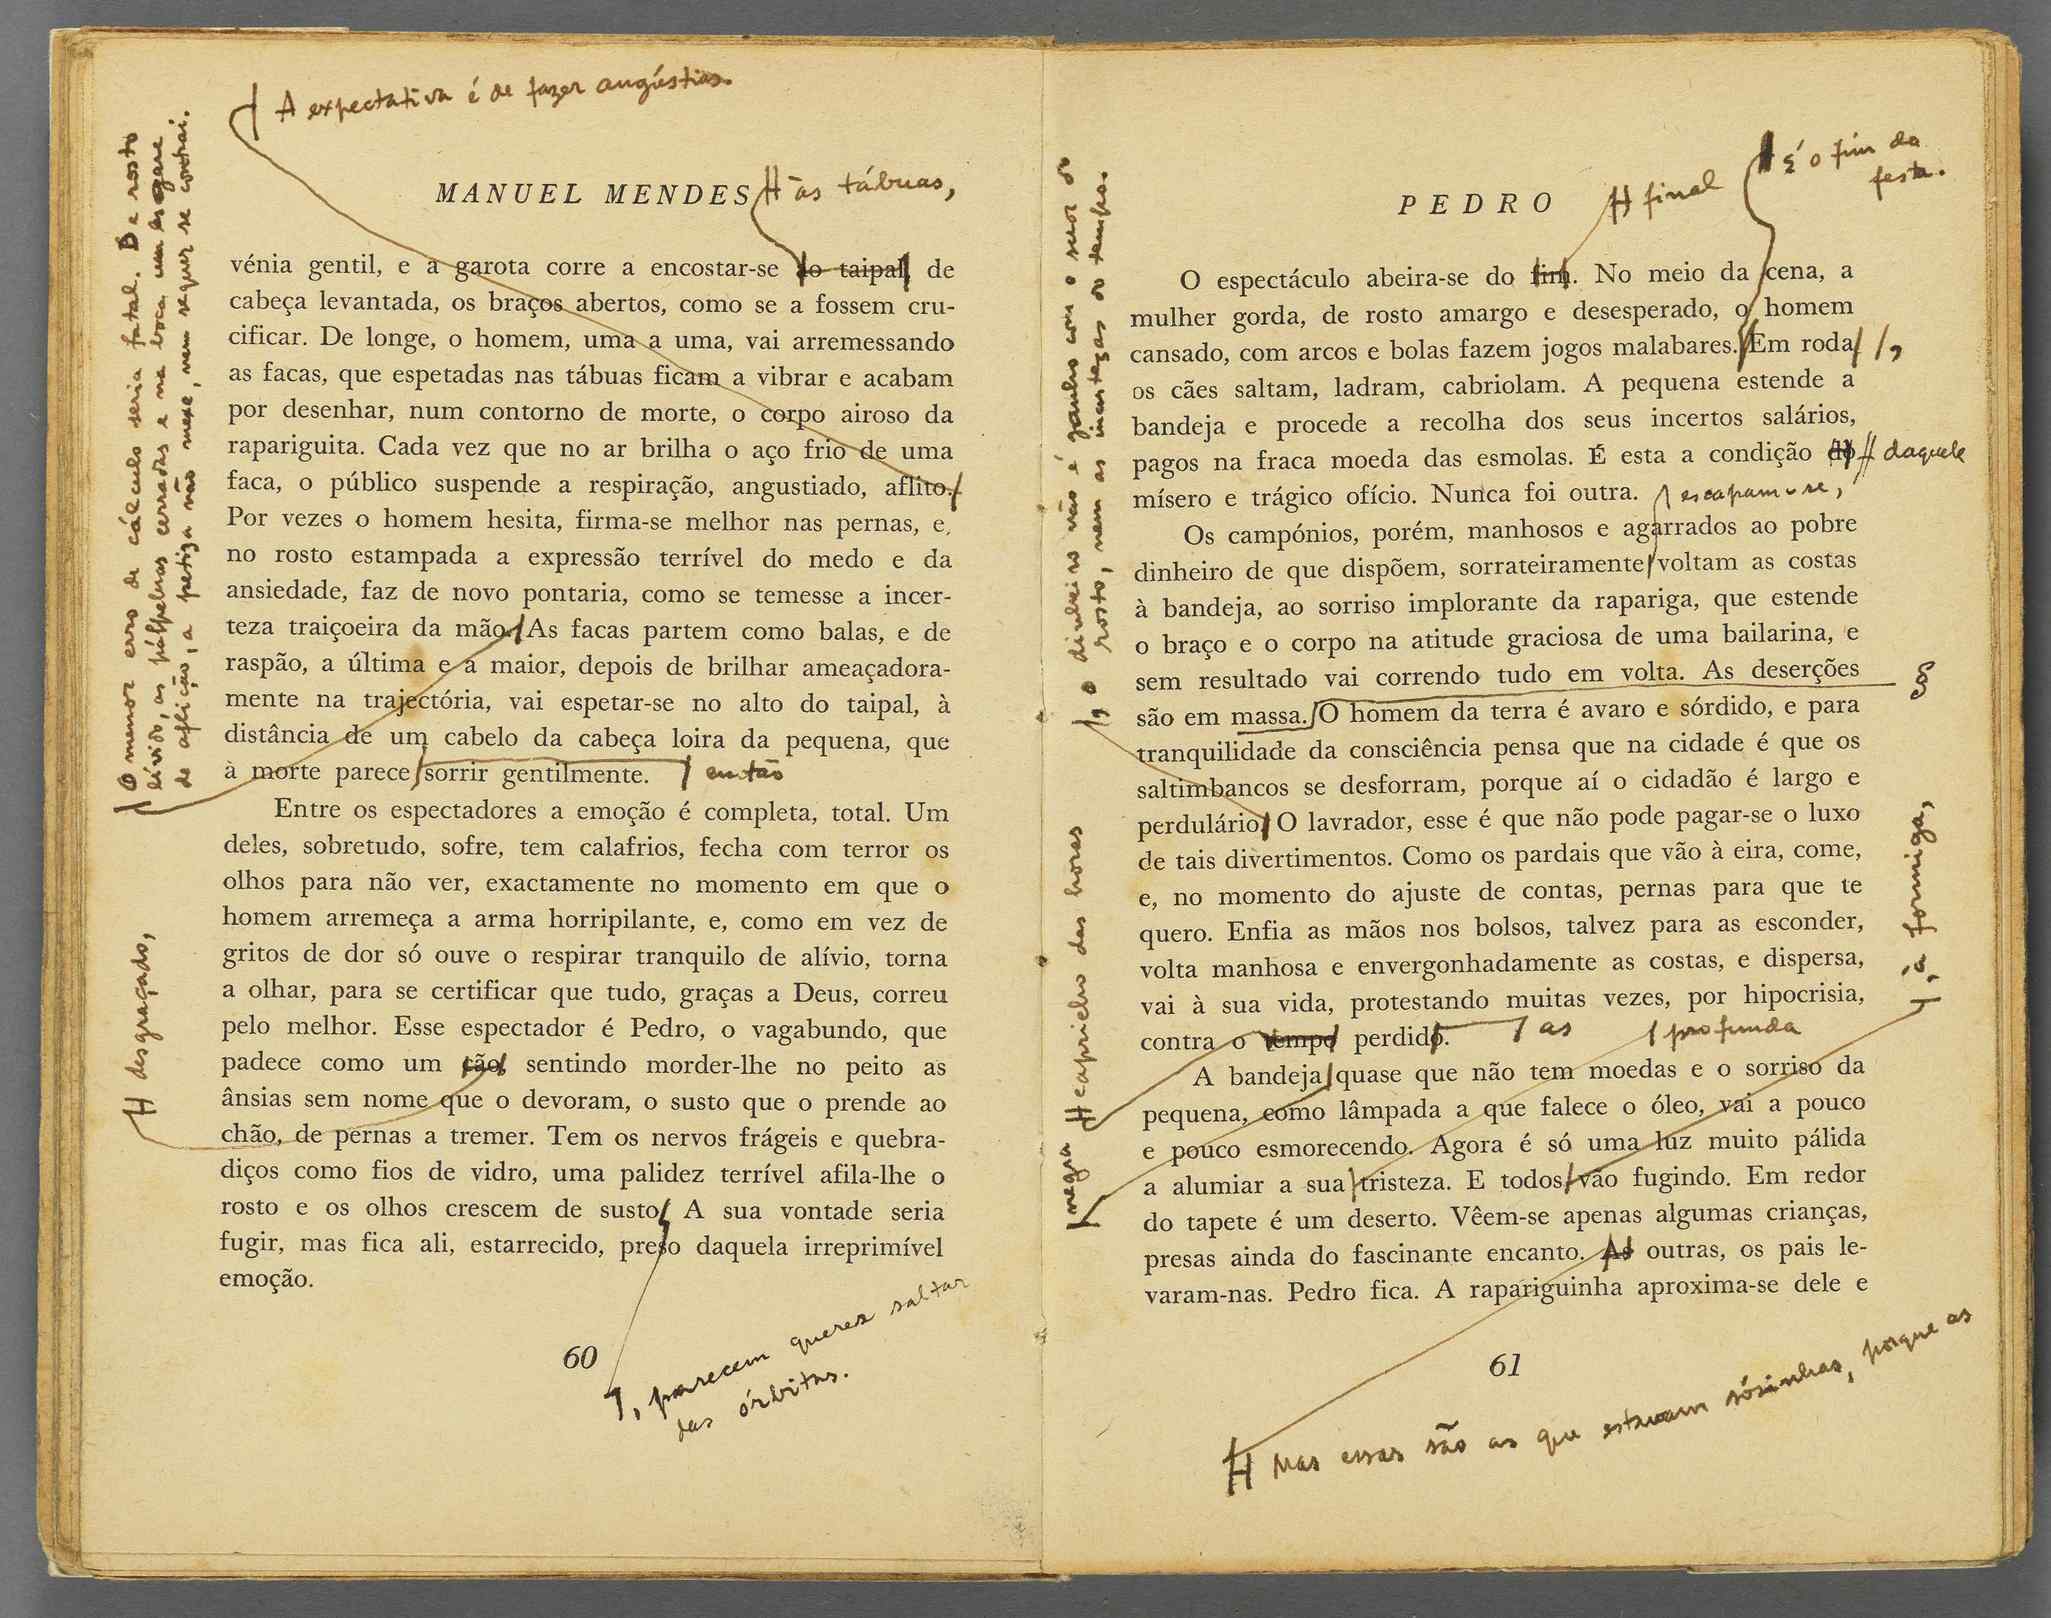 A expectativa é de fazer angústias.
MANUEL MENDES
às tábuas,
vénia gentil, e a garota corre a encostar-se ao taipal, de
cabeça levantada, os braços abertos, como se a fossem cru-
cificar. De longe, o homem, uma a uma, vai arremessando
as facas, que espetadas nas tábuas ficam a vibrar e acabam
por desenhar, num contorno de morte, o corpo airoso da
rapariguita. Cada vez que no ar brilha o aço frio de uma
faca, o público suspende a respiração, angustiado, aflito.
Por vezes o homem hesita, firma-se melhor nas pernas, e,
no rosto estampada a expressão terrível do medo e da
ansiedade, faz de novo pontaria, como se temesse a incer-
teza traiçoeira da mão. As facas partem como balas, e de
raspão, a última e a maior, depois de brilhar ameaçadora-
mente na trajectória, vai espetar-se no alto do taipal, à
distância de um cabelo da cabeça loira da pequena, que
à morte parece sorrir gentilmente.
então
Entre os espectadores a emoção é completa, total. Um
deles, sobretudo, sofre, tem calafrios, fecha com terror os
olhos para não ver, exactamente no momento em que o
homem arremeça a arma horripilante, e, como em vez de
gritos de dor só ouve o respirar tranquilo de alívio, torna
a olhar, para se certificar que tudo, graças a Deus, correu
pelo melhor. Esse espectador é Pedro, o vagabundo, que
padece como um cão, sentindo morder-lhe no peito as
ânsias sem nome que o devoram, o susto que o prende ao
chão, de pernas a tremer. Tem os nervos frágeis e quebra-
diços como fios de vidro, uma palidez terrível afila-lhe o
rosto e os olhos crescem de susto. A sua vontade seria
fugir, mas fica ali, estarrecido, preso daquela irreprimível
emoção.
60
, parecem querer saltar
das órbitas.
O menor erro de cálculo seria fatal. De rosto
lívido, as pálpebras cerradas e na boca um esgare
de aflição, a petiza não mexe, nem sequer se contrai.
desgraçado,
PEDRO
final
É o fim da
festa.
O espectáculo abeira-se do fim. No meio da cena, a
mulher gorda, de rosto amargo e desesperado, o homem
cansado, com arcos e bolas fazem jogos malabares. Em roda
,
os cães saltam, ladram, cabriolam. A pequena estende a
bandeja e procede a recolha dos seus incertos salários,
pagos na fraca moeda das esmolas. É esta a condição do
daquele
mísero e trágico ofício. Nunca foi outra.
escapam-se,
Os campónios, porém, manhosos e agarrados ao pobre
dinheiro de que dispõem, sorrateiramente voltam as costas
à bandeja, ao sorriso implorante da rapariga, que estende
o braço e o corpo na atitude graciosa de uma bailarina, e
sem resultado vai correndo tudo em volta. As deserções
são em massa. O homem da terra é avaro e sórdido, e para
tranquilidade da consciência pensa que na cidade é que os
saltimbancos se desforram, porque aí o cidadão é largo e
perdulário. O lavrador, esse é que não pode pagar-se o luxo
de tais divertimentos. Como os pardais que vão à eira, come,
e, no momento do ajuste de contas, pernas para que te
quero. Enfia as mãos nos bolsos, talvez para as esconder,
volta manhosa e envergonhadamente as costas, e dispersa,
vai à sua vida, protestando muitas vezes, por hipocrisia,
contra o tempo perdido.
as
profunda
A bandeja quase que não tem moedas e o sorriso da
pequena, como lâmpada a que falece o óleo, vai a pouco
e pouco esmorecendo. Agora é só uma luz muito pálida
a alumiar a sua tristeza. E todos vão fugindo. Em redor
do tapete é um deserto. Vêem-se apenas algumas crianças,
presas ainda do fascinante encanto. As outras, os pais le-
varam-nas. Pedro fica. A rapariguinha aproxima-se dele e
61
Mas essas são as que estavam sósinhas, porque as
, o dinheiro não é ganho com o suor do
rosto, nem as incertezas do tempo.
capricho das horas
negra
, à formiga,